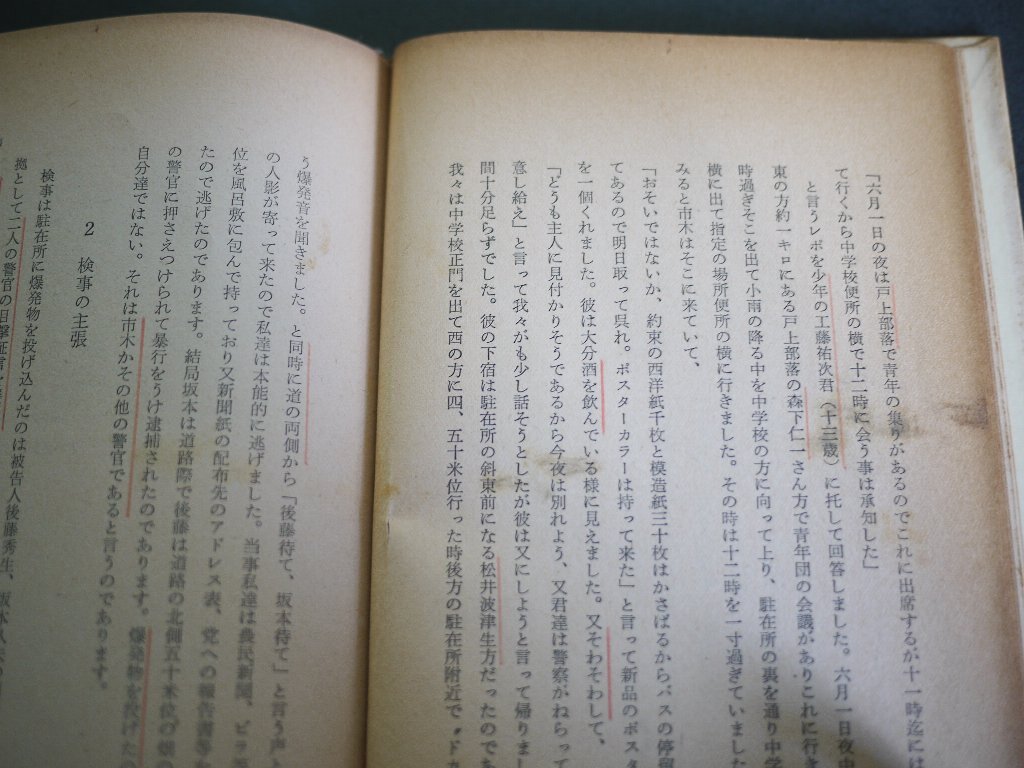 「六月一日の夜は戸上部落で青年の集りがあるのでこれに出席するが十一時迄には
て行くから中学校便所の横で十二時に会う事は承知した」
と言うレポを少年の工藤祐次君（十三歳）に托して回答しました。六月一日夜中
東の方約一キロにある戸上部落の森下仁一さん方で青年団の会議がありこれに行き
時過ぎそこを出て小雨の降る中を中学校の方に向って上り、駐在所の裏を通り中学
横に出て指定の場所便所の横に行きました。その時は十二時を一寸過ぎていました
みると市木はそこに来ていて、
「おそいではないか、約束の西洋紙千枚と模造紙三十枚はかさばるからバスの停留
てあるので明日取って呉れ。ポスターカラーは持って来た」と言って新品のポスタ
を一個くれました。彼は大分酒を飲んでいる様に見えました。又そわそわして、
「どうも主人に見付かりそうであるから今夜は別れよう、又君達は警察がねらって
意し給え」と言って我々がも少し話そうとしたが彼は又にしようと言って帰りまし
間十分足らずでした。彼の下宿は駐在所の斜東前になる松井波津生方だったのであ
我々は中学校正門を出て西の方に四、五十米位行った時後方の駐在所附近で〝ドカ
う爆発音を聞きました。と同時に道の両側から「後藤待て、坂本待て」と言う声と
の人影が寄って来たので私達は本能的に逃げました。当事私達は農民新聞、ビラ
位を風呂敷に包んで持っており又新聞紙の配布先のアドレス表、党への報告書等
たので逃げたのであります。結局坂本は道路際で後藤は道路の北側五十米位の畑の
の警官に押さえつけられて暴行をうけ逮捕されたのであります。爆発物を投げた
自分達ではない。それは市木かその他の警官であると言うのであります。
2 検事の主張
検事は駐在所に爆発物を投げ込んだのは被告人後藤秀生、坂本
拠として二人の警官の目撃証言